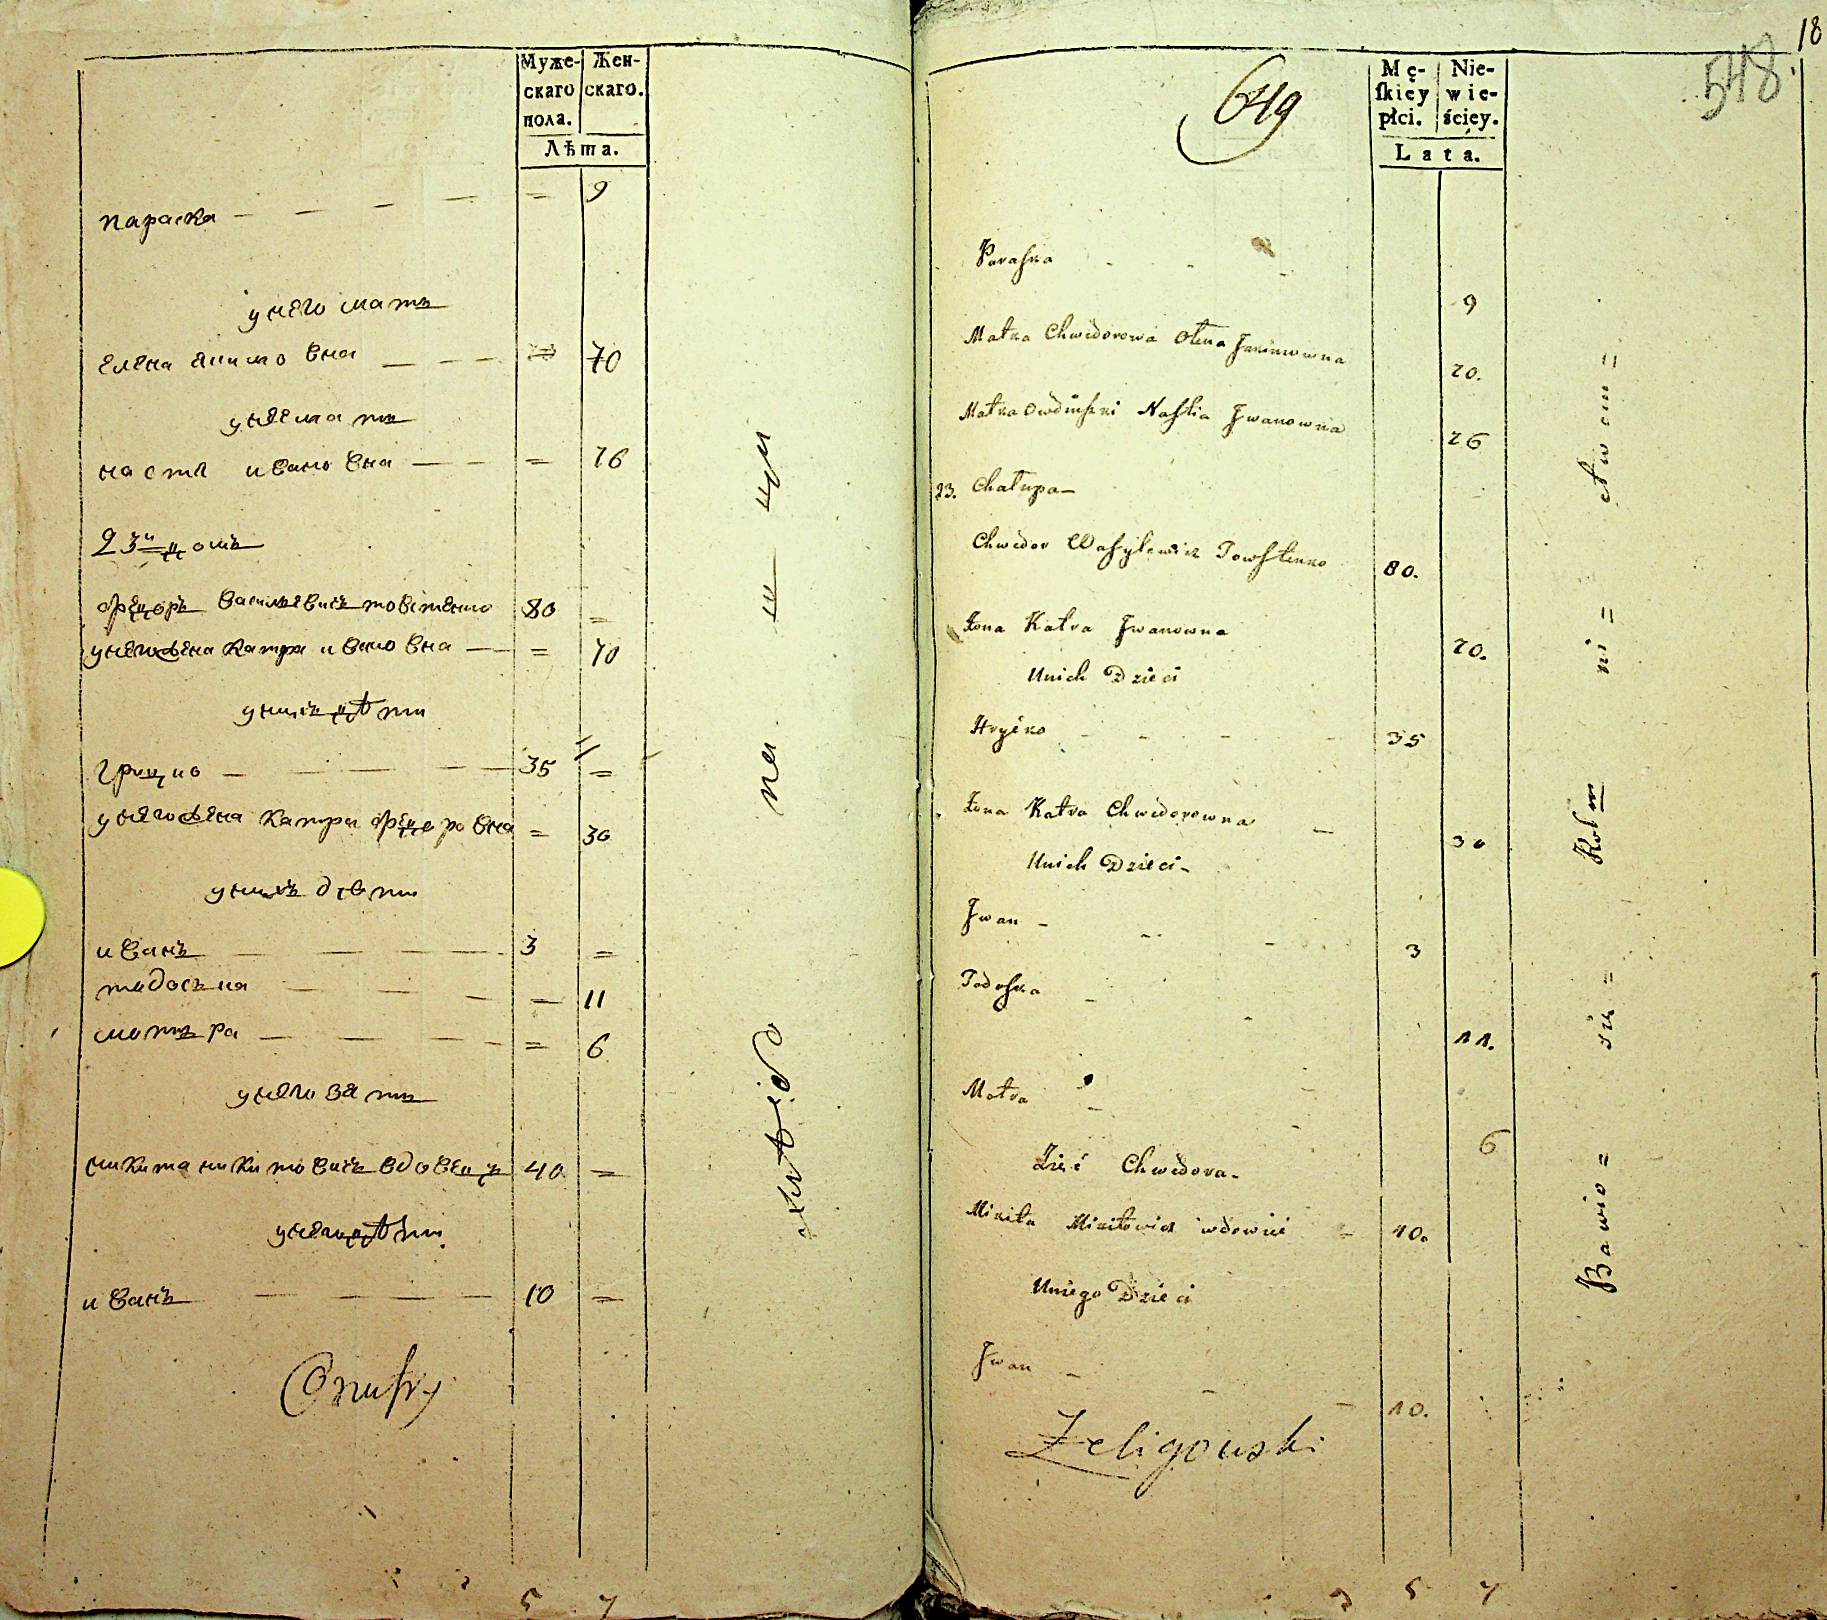 Муже-
скаго
пола.
Жен-
скаго.
Лѣта.
параска — — — — = 9
у него мать
елена якимовна — — — 70
у нее мать
настя ивановна — — = 76
23й домъ
федоръ васильевичъ товстенко 80 =
у него жена катря ивановна — = 70
у нихъ дѣти
грицко — — — — 35 =
у него жена катря федоровна = 30
у нихъ дѣти
иванъ — — — — 3 =
тодоська — — — — 11
мотъра — — — — = 6
у него зять
микита никитовичъ вдовецъ 40 =
у него дѣти
иванъ — — — — 10 =
Onufry
18
548.
649
Mę-
skiey
płci.
Nie-
wie-
ściey.
Lata.
Paraska - - - 9
Matka Chwedorowa Olena Jakimowna 70.
Matka Owdiuszki Nastia Jwanowna 76
23. Chałupa—
Chwedor Wasylewicz Towstenko 80.
Żona Katra Jwanowna 70.
Unich Dzieci
Hryćko - - - - 35
Żona Katra Chwedorowna — 30
Unich Dzieci-
Jwan - - - 3
Todoska - - 11.
Motra - - 6
Zięć Chwedora-
Mikita Mikitowicz wdowiec - 40.
Uniego Dzieci
Jwan - - - 10.
Zeligowski
5 7
2 5 7